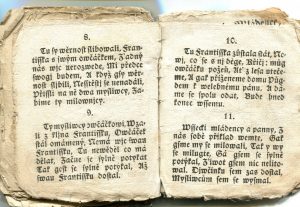 8.
Tu sy wěrnost slibowali, Fran-
tisska s swým owčáčkem, Žádný
nás wjc nerozwede, My předce
swogi budem, A když gsy wěr-
nost sljbili, Nesstěstj se nenadáli,
Přissli na ně dwa myslíwcy, Za-
bime ty milownjcy.
9.
Ty myslíwcy owčáčkowi Wza-
li z klína Frantissku, Owčáček
stál omámený, Nemá wjc swau
Frantissku, Tu newěděl co má
dělat, Začne se sylně potýkat
Tak gest se sylně potýkal, Až
swau Frantissku dostal.
10.
Tu Frantisska zůstala stát, Ne-
wj, co se s nj děge, Křičj: můg
owčáčku pozeň, Ať z lesa uteče-
me, A gak přiženeme domu Pů-
gdem k welebnému pánu, A dá-
me se spolu odat, Bude hned
konec wssemu.
11.
Wssicki mládency a panny, Z
nás sobě přjklad wemte, Gak
gsme my se milowali, Tak y wy
se milugte, Gá gsem se sylně
potýkal, Ziwot gsem nic nelito-
wal, Djwčinku sem zas dostal,
Myslíwcům sem se wysmal.